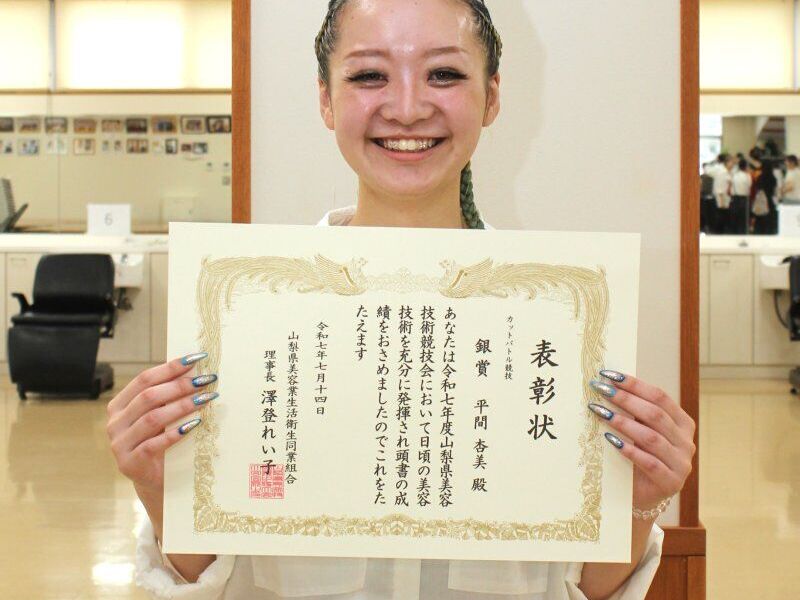 表彰状
カットバトル競技
銀賞 平間 杏美 殿
あなたは令和七年度山梨県美容
技術競技会において日頃の美容
技術を充分に発揮され頭書の成
績をおさめましたのでこれをた
たえます
令和七年七月十四日
山梨県美容業生活衛生同業組合
理事長 澤登れい子
6